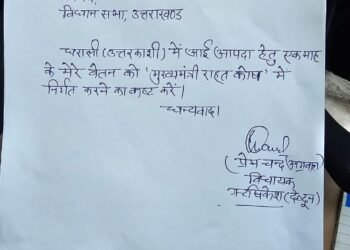 विधान सभा, उत्तराखण्ड
धराली (उत्तरकाशी) में आई आपदा हेतु एक माह
के मेरे वेतन को 'मुख्यमंत्री राहत कोष' में
निर्गत करने का कष्ट करें।
धन्यवाद।
(प्रेम चन्द अग्रवाल)
विधायक
ऋषिकेश (देहरादून)